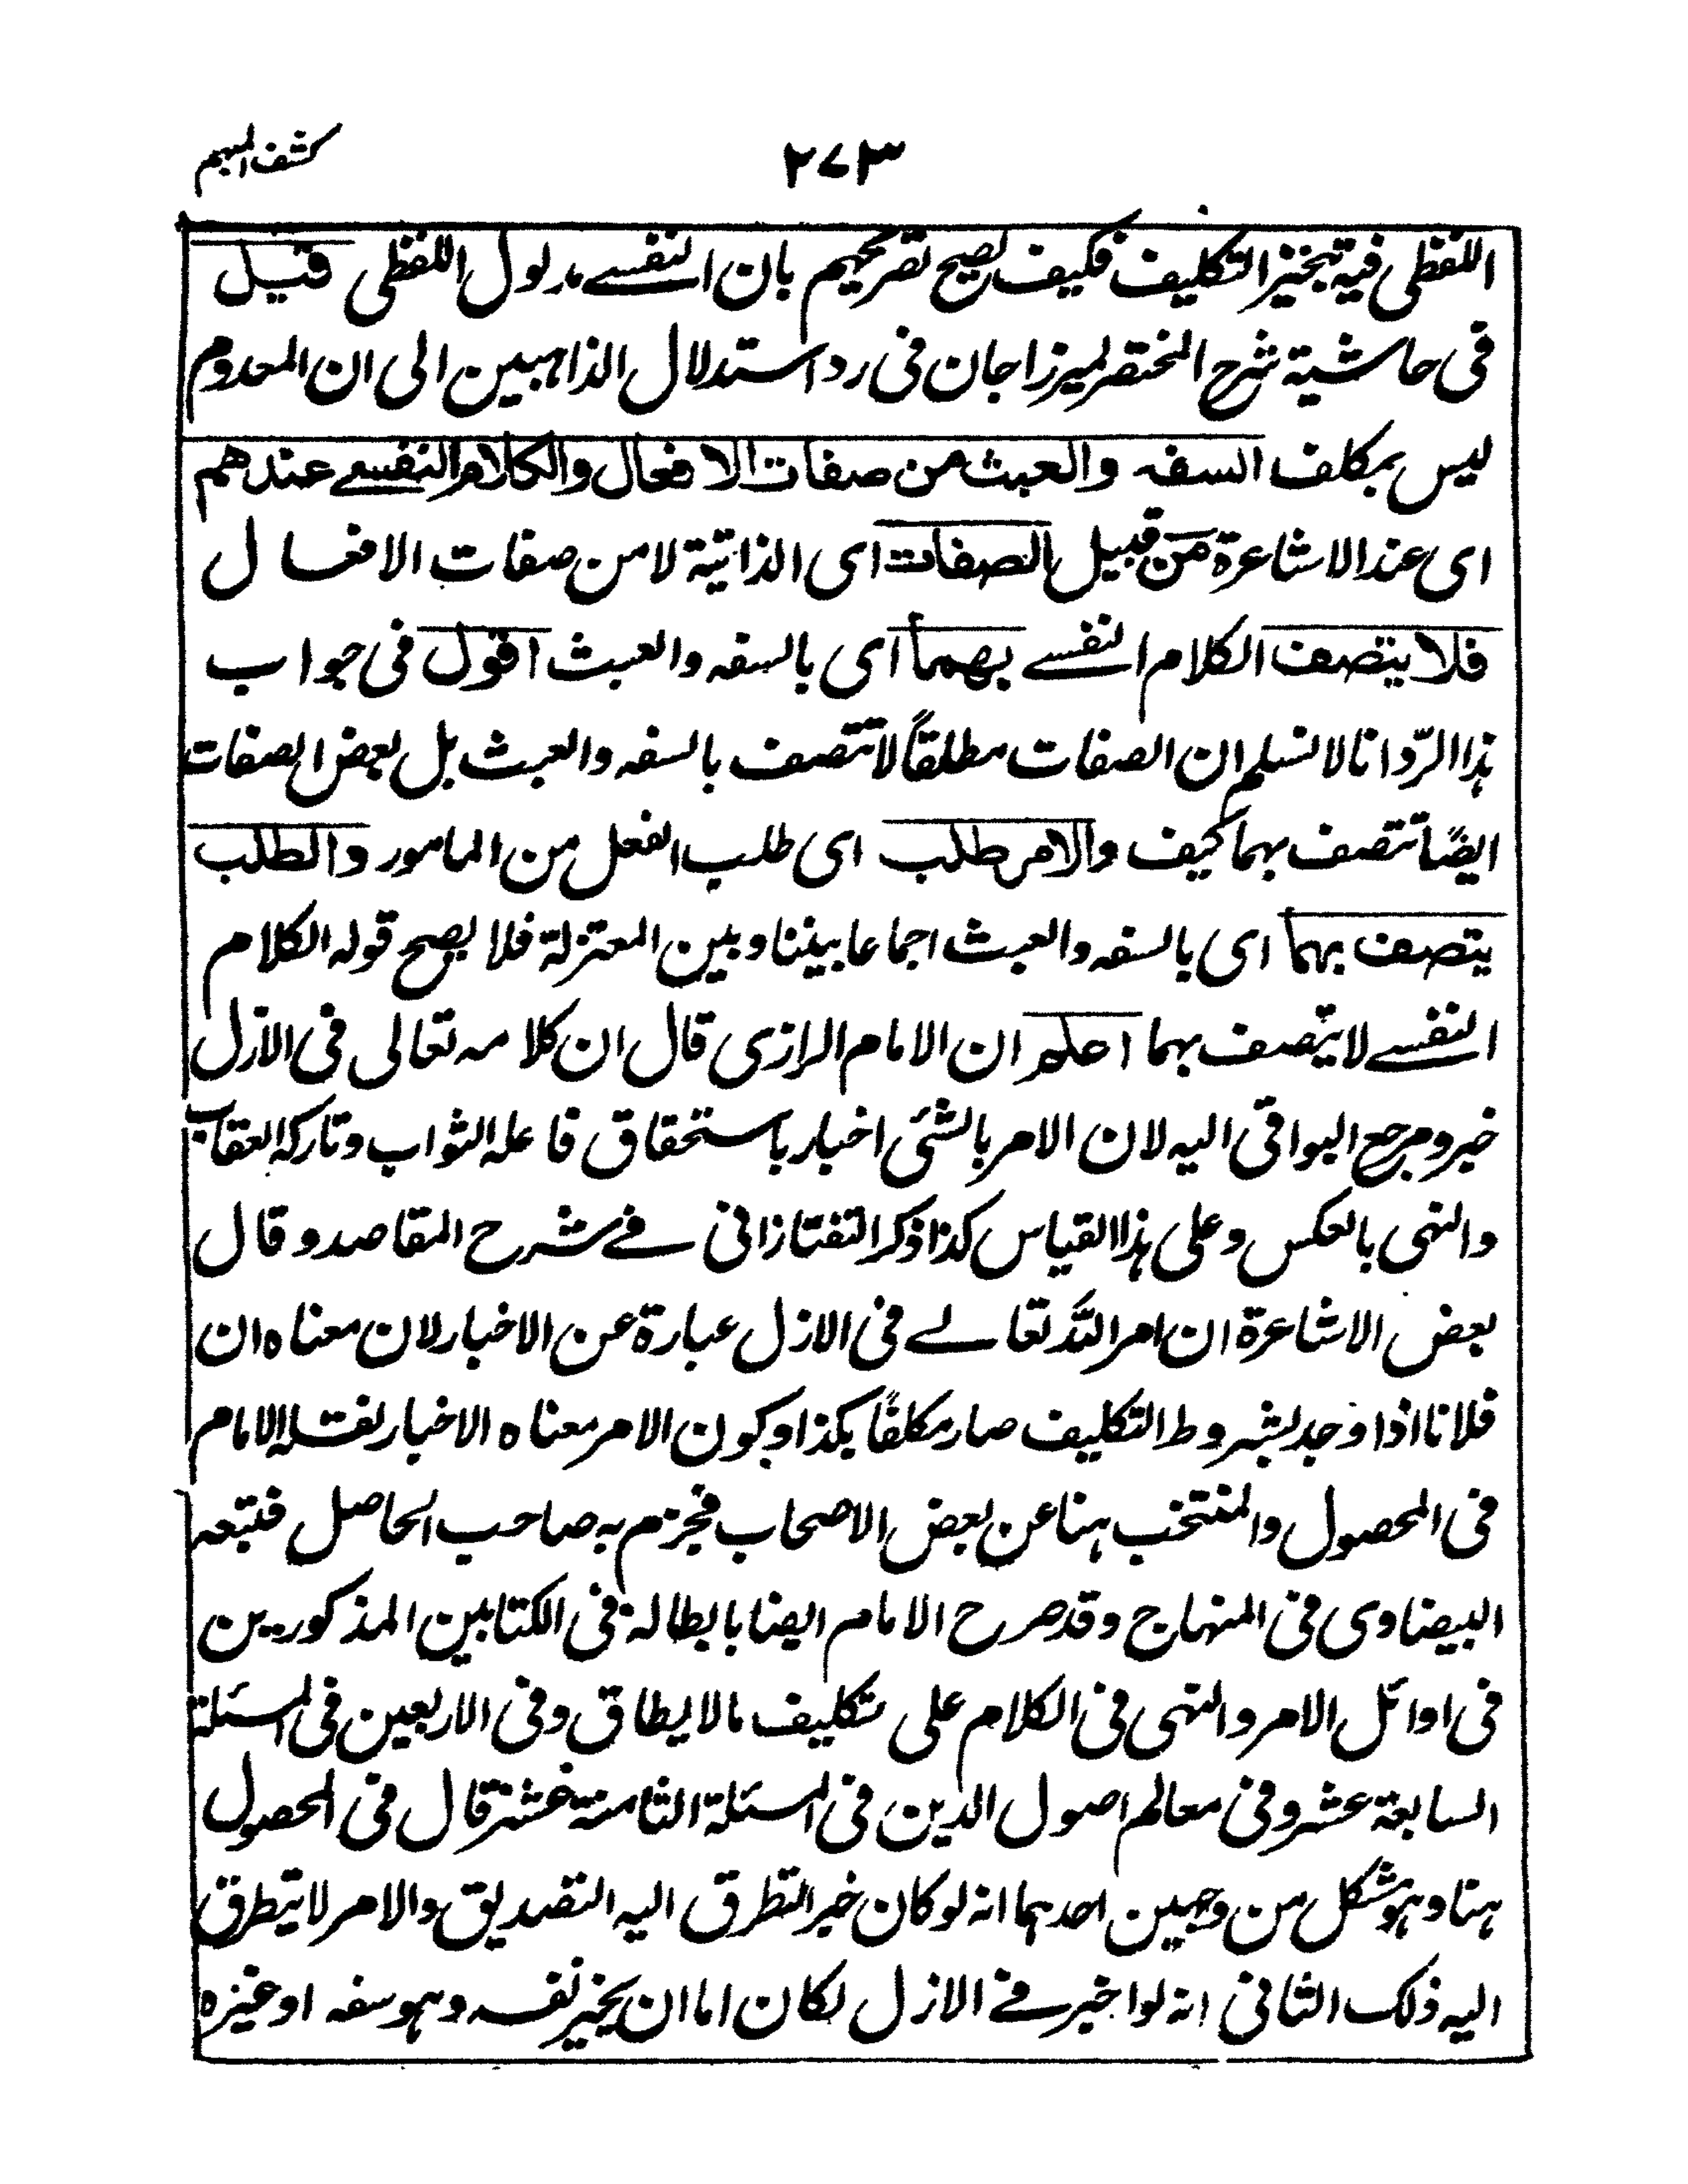 كشف المبهم
٢٧٣
اللفظى فيه تنجيز التكليف فكيف يصح تصريحهم بان النفسى مدلول اللفظى قيل
فى حاشية شرح المختصر لميرزاجان فى رد استدلال الذاهبين الى ان المعدوم
ليس بمكلف السفه والعبث من صفات الافعال والكلام النفسى عندهم
اى عند الاشاعرة من قبيل الصفات اى الذاتية لا من صفات الافعال
فلا يتصف الكلام النفسى بهما اى بالسفه والعبث اقول فى جواب
هذا الردّ انا لا نسلم ان الصفات مطلقاً لا تتصف بالسفه والعبث بل بعض الصفات
ايضًا تتصف بهما كيف والامر طلب اى طلب الفعل من المامور والطلب
يتصف بهما اى بالسفه والعبث اجماعا بيننا وبين المعتزلة فلا يصح قوله الكلام
النفسى لا يتصف بهما اعلم ان الامام الرازى قال ان كلامه تعالى فى الازل
خبر ومرجع البواقى اليه لان الامر بالشئ اخبار باستحقاق فاعله الثواب وتاركه العقاب
والنهى بالعكس وعلى هذا القياس كذا ذكر التفتازانى فى شرح المقاصد وقال
بعض الاشاعرة ان امر الله تعالى فى الازل عبارة عن الاخبار لان معناه ان
فلانا اذا وجد بشروط التكليف صار مكلفًا بكذا وكون الامر معناه الاخبار نقله الامام
فى المحصول والمنتخب هنا عن بعض الاصحاب فجزم به صاحب الحاصل فتبعه
البيضاوى فى المنهاج وقد صرح الامام ايضا بابطاله فى الكتابين المذكورين
فى اوائل الامر والنهى فى الكلام على تكليف مالا يطاق وفى الاربعين فى المسئلة
السابعة عشر وفى معالم اصول الدين فى المسئلة الثامنة عشر قال فى المحصول
هنا وهو مشكل من وجهين احدهما انه لو كان خبر التطرق اليه التصديق والامر لا يتطرق
اليه ذلك الثانى انه لو اخبر فى الازل لكان اما ان يخبر نفسه وهو سفه او غيره